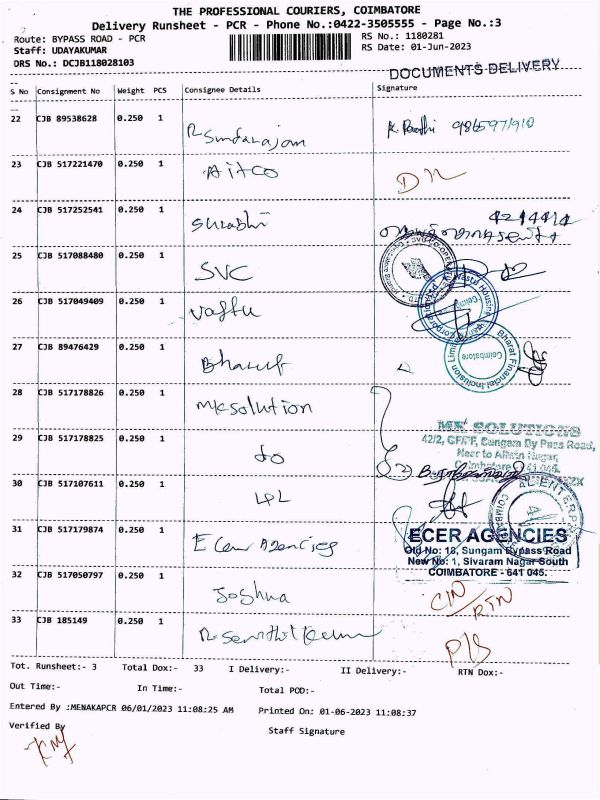 THE PROFESSIONAL COURIERS, COIMBATORE
Delivery Runsheet - PCR - Phone No.:0422-3505555 - Page No.:3
Route: BYPASS ROAD - PCR RS No.: 1180281
Staff: UDAYAKUMAR RS Date: 01-Jun-2023
DRS No.: DCJB118028103
DOCUMENTS DELIVERY
S No Consignment No Weight PCS Consignee Details Signature
22 CJB 89538628 0.250 1 R Sundarajan
23 CJB 517221470 0.250 1 Aitco
24 CJB 517252541 0.250 1 Surabhi 4214414
25 CJB 517088480 0.250 1 SVC
26 CJB 517049409 0.250 1 Vasthu
27 CJB 89476429 0.250 1 Bharat
Bharat Financial Inclusion Limited
Coimbatore
28 CJB 517178826 0.250 1 MK Solution
MK SOLUTIONS
42/2, Sungam By Pass Road,
Near to Alvein Nagar,
Coimbatore
29 CJB 517178825 0.250 1 do
30 CJB 517107611 0.250 1 LPL
31 CJB 517179874 0.250 1 Ecer Agencies
ECER AGENCIES
Old No: 18, Sungam Bypass Road
New No: 1, Sivaram Nagar South
COIMBATORE - 641 045.
32 CJB 517050797 0.250 1 Joshua RTN
33 CJB 185149 0.250 1 R Senthil Kumar
Tot. Runsheet:- 3 Total Dox:- 33 I Delivery:- II Delivery:- RTN Dox:-
Out Time:- In Time:- Total POD:-
Entered By :MENAKAPCR 06/01/2023 11:08:25 AM Printed On: 01-06-2023 11:08:37
Verified By Staff Signature